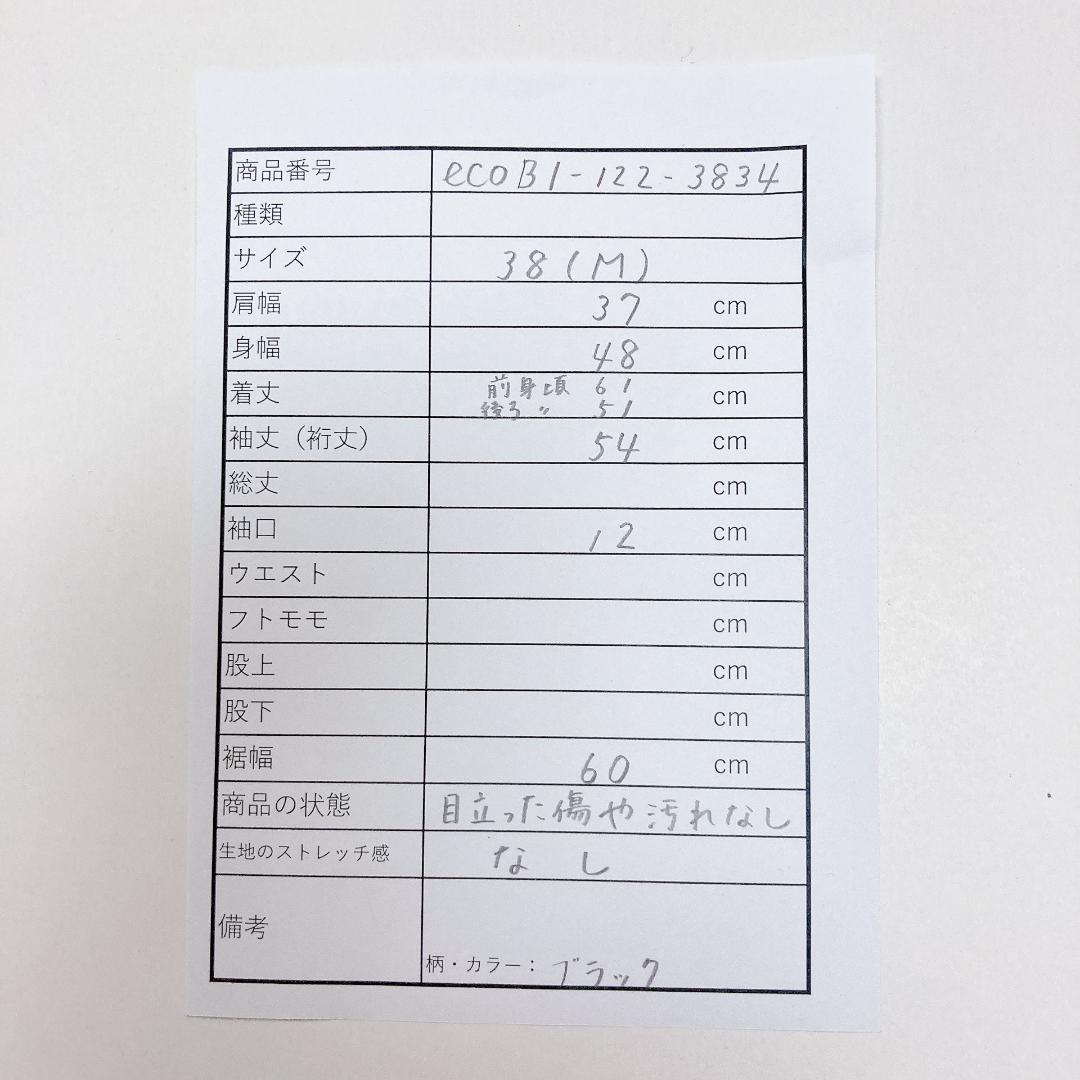 商品番号 ecoB1-122-3834
種類
サイズ 38(M)
肩幅 37 cm
身幅 48 cm
着丈 前身頃 61 cm
後ろ 〃 51
袖丈（裄丈） 54 cm
総丈 cm
袖口 12 cm
ウエスト cm
フトモモ cm
股上 cm
股下 cm
裾幅 60 cm
商品の状態 目立った傷や汚れなし
生地のストレッチ感 なし
備考
柄・カラー： ブラック